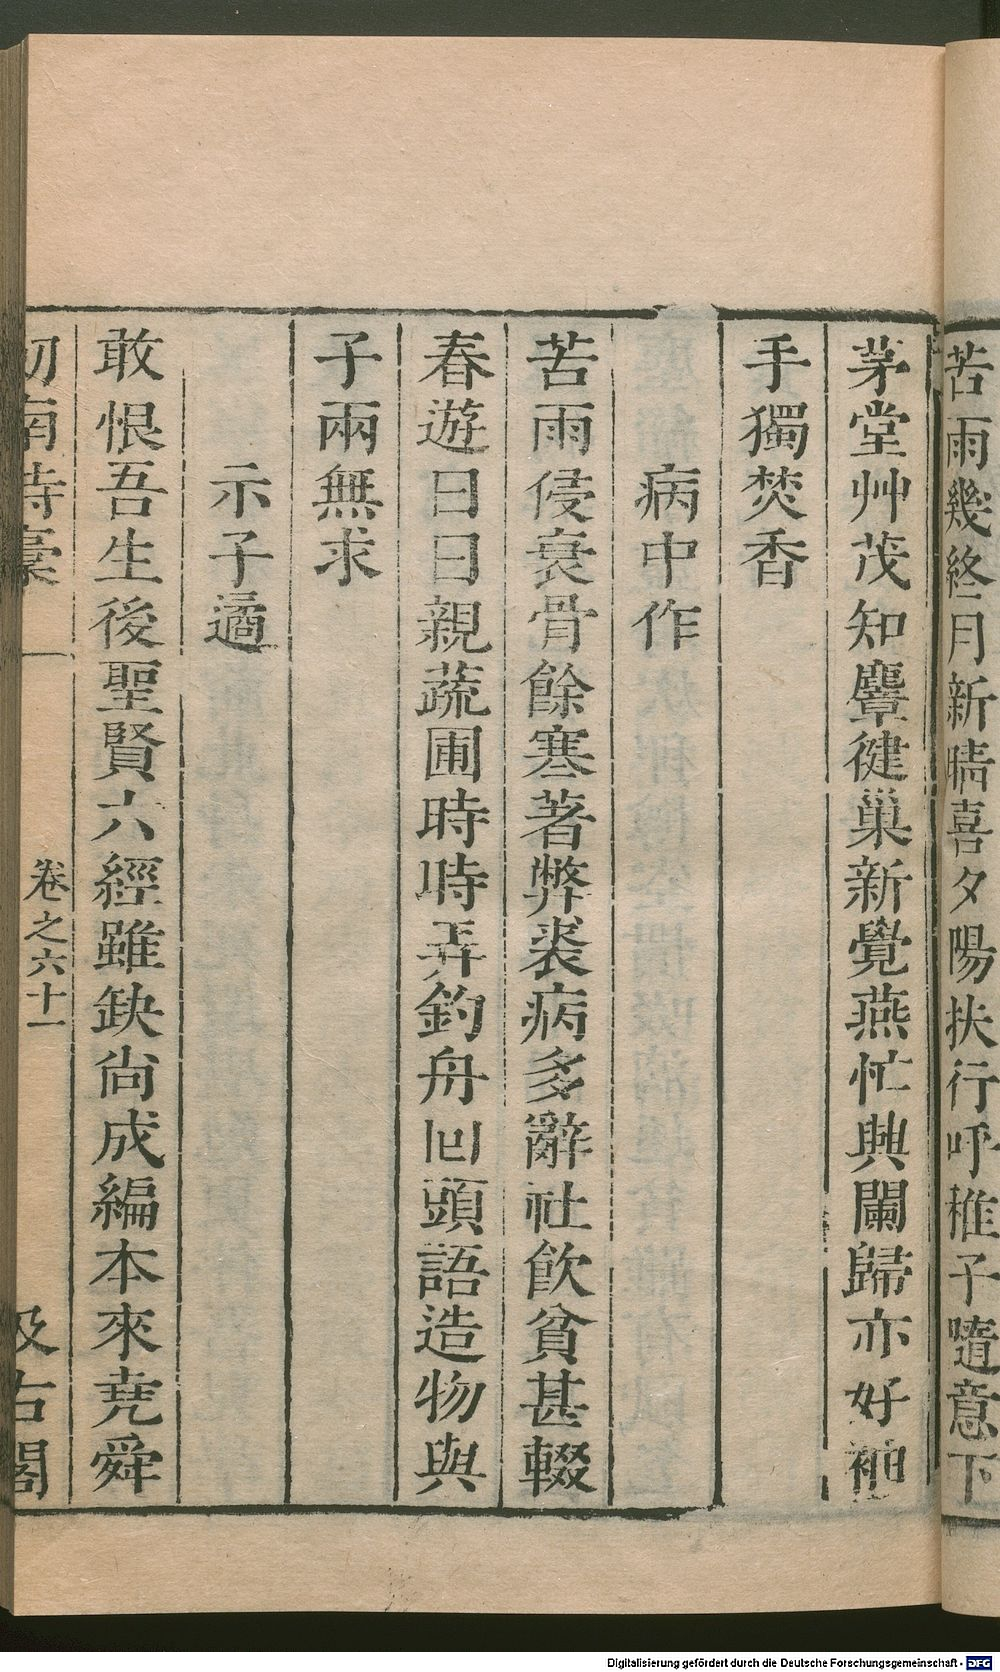 苦雨幾終月新晴喜夕陽扶行呼稚子隨意下
茅堂艸茂知麞健巢新覺燕忙興闌歸亦好袖
手獨焚香
病中作
苦雨侵衰骨餘寒著弊裘病多辭社飲貧甚輟
春遊日日親蔬圃時時弄釣舟回頭語造物與
子兩無求
示子遹
敢恨吾生後聖賢六經雖缺尚成編本來堯舜
劍南詩稾
卷之六十一
汲古閣
Digitalisierung gefördert durch die Deutsche Forschungsgemeinschaft - DFG